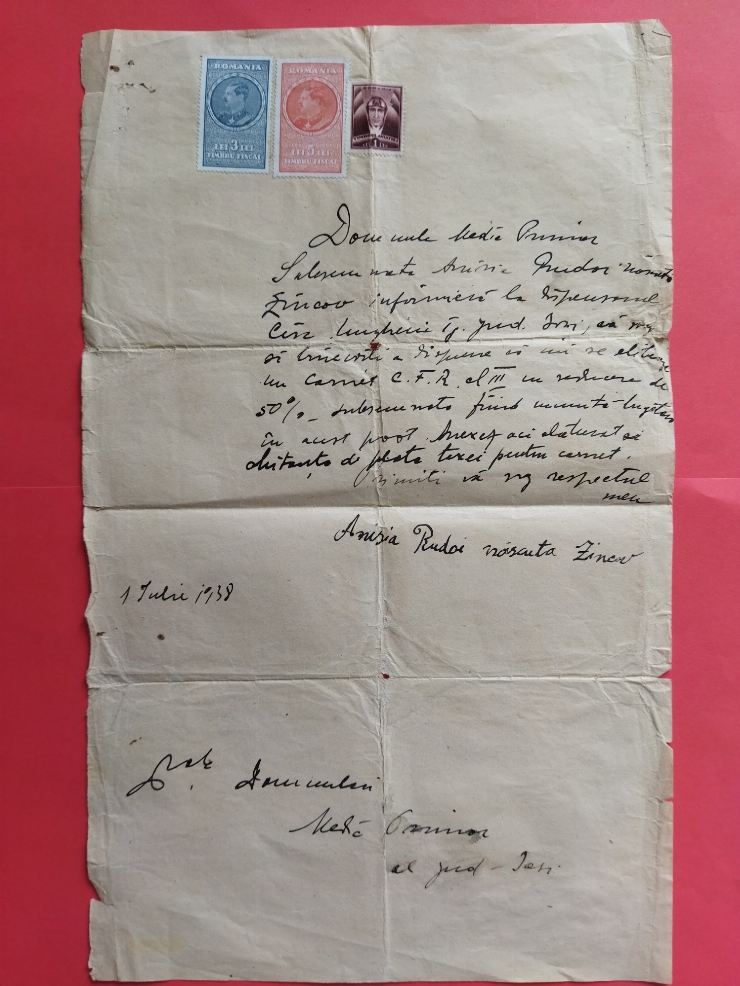 ROMANIA
LEI 3 LEI
TIMBRU FISCAL
ROMANIA
LEI 5 LEI
TIMBRU FISCAL
1
Domnule Medic Primar
Subsemnata Anisia Rudoi născută
Zincov infirmieră la dispensarul
Ungheni Tg. jud. Iași, vă rog
să binevoiți a dispune să mi se elibereze
un carnet C.F.R. cl III cu reducere de
50%_ subsemnata fiind numită bugetar
în acest post. Anexez aci
chitanța de plata taxei pentru carnet.
Primiti vă rog respectul
meu
Anisia Rudoi născuta Zincov
1 Iulie 1938
Domnului
Medic Primar
al jud - Iasi